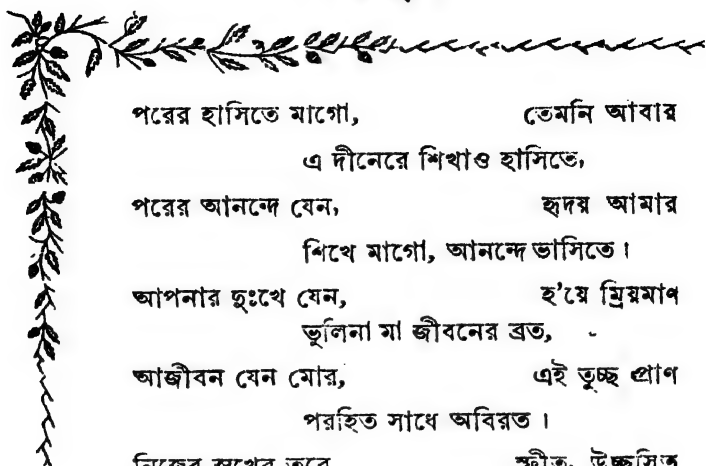 পরের হাসিতে মাগো, তেমনি আবার
এ দীনেরে শিখাও হাসিতে,
পরের আনন্দে যেন, হৃদয় আমার
শিখে মাগো, আনন্দে ভাসিতে।
আপনার দুঃখে যেন, হ'য়ে ম্রিয়মাণ
ভুলিনা মা জীবনের ব্রত,
আজীবন যেন মোর, এই তুচ্ছ প্রাণ
পরহিত সাধে অবিরত।
নিজের সুখের তরে স্ফীত, উচ্ছ্বসিত